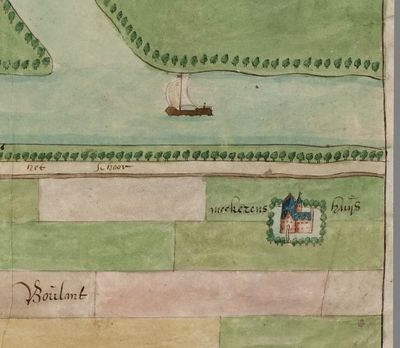 het schoor
meckerens huijs
Boulant